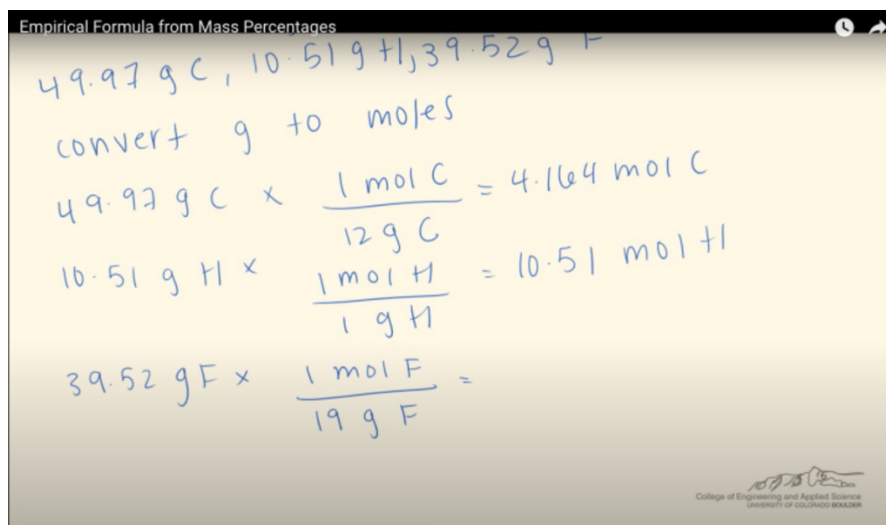 Empirical Formula from Mass Percentages
49.97 g C, 10.51 g H, 39.52 g F
convert g to moles
49.97 g C x 1 mol C / 12 g C = 4.164 mol C
10.51 g H x 1 mol H / 1 g H = 10.51 mol H
39.52 g F x 1 mol F / 19 g F =
College of Engineering and Applied Science
UNIVERSITY OF COLORADO BOULDER